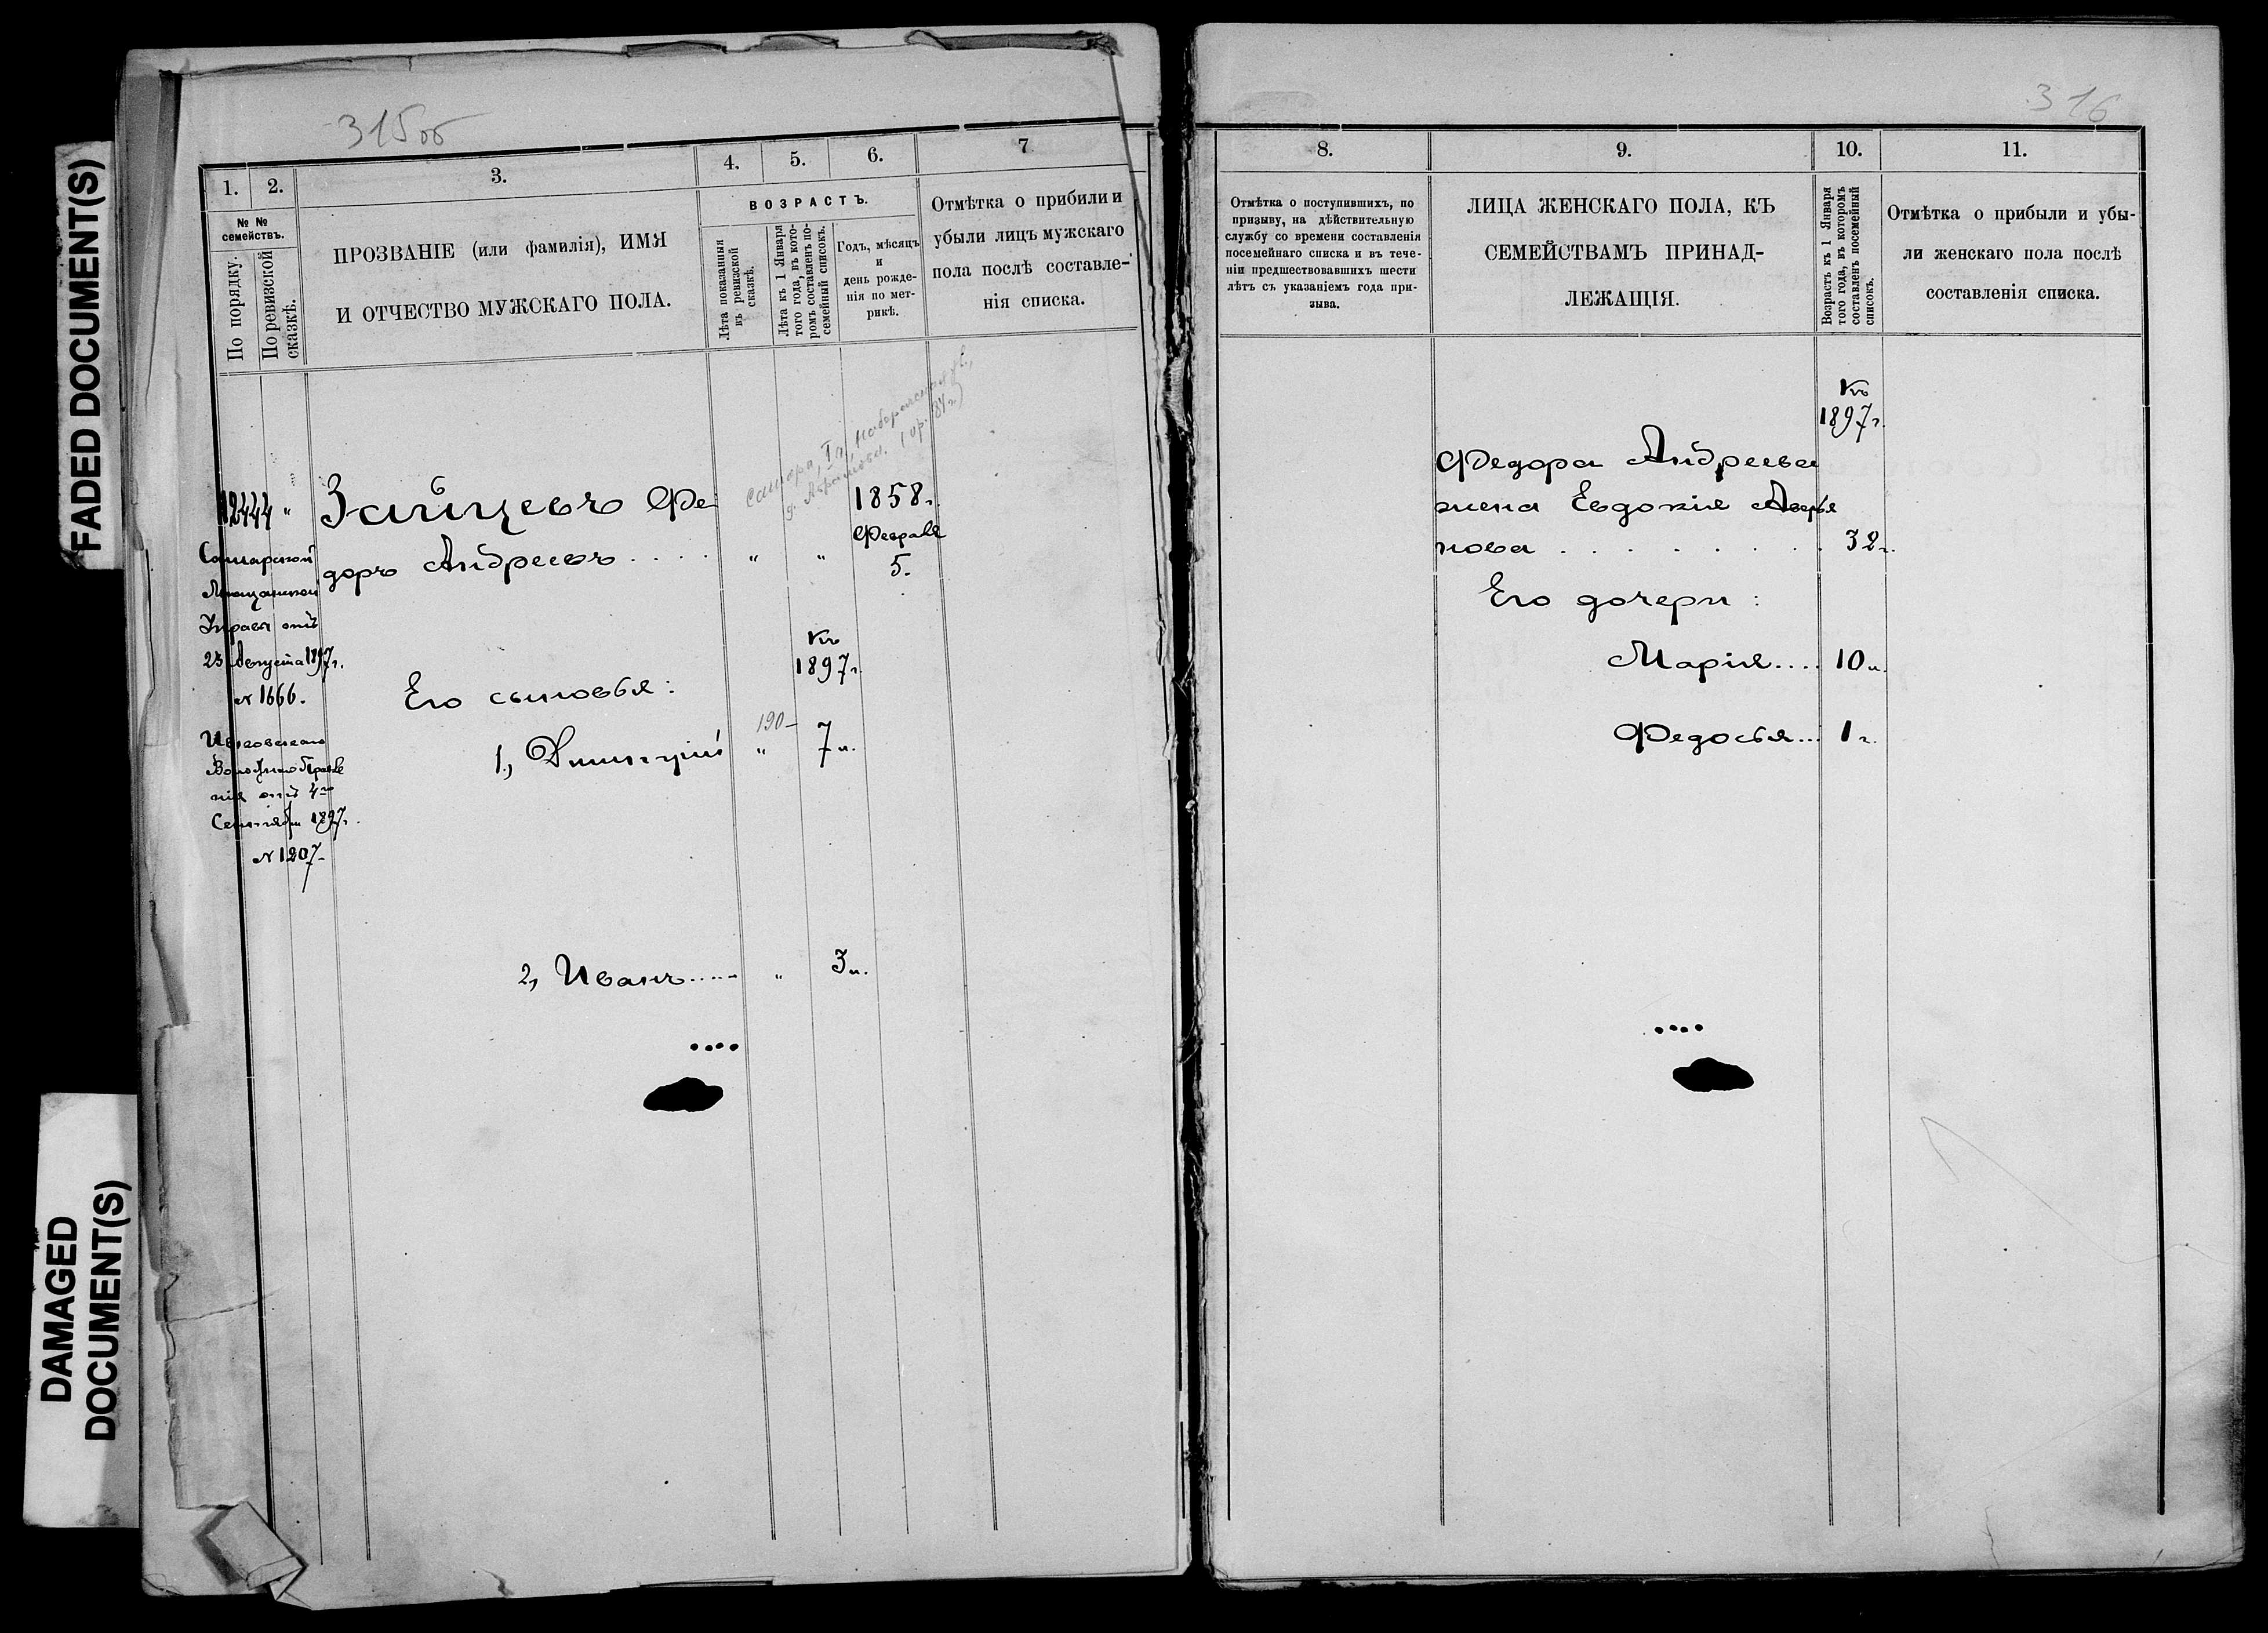 FADED DOCUMENT(S)
DAMAGED
DOCUMENT(S)
315об
1.
2.
3.
4.
5.
6.
7
№ №
семействъ.
По порядку.
По ревизской
сказкѣ.
ПРОЗВАНІЕ (или фамилія), ИМЯ
И ОТЧЕСТВО МУЖСКАГО ПОЛА.
ВОЗРАСТЪ.
Лѣта показанія
въ ревизской
сказкѣ.
Лѣта къ 1 Января
того года, въ кото-
ромъ составленъ по-
семейный списокъ.
Годъ, мѣсяцъ
и
день рожде-
нія по мет-
рикѣ.
Отмѣтка о прибили и
убыли лицъ мужскаго
пола послѣ составле-
нія списка.
Самара, I ч,
12444 "
Самарской
Мѣщанской
Управы отъ
23 Августа 1897 г.
№ 1666.
Волостного Правле
нія отъ 4го
Сентября 1897 г.
№ 1207
Зайцевъ Фе
доръ Андреевъ . . . . " "
1858 г.
Февраля
5.
Къ
1897 г.
Его сыновья:
190-
1, Димитрій " 7 л.
2, Иванъ...... " 3 л.
316
8.
9.
10.
11.
Отмѣтка о поступившихъ, по
призыву, на дѣйствительную
службу со времени составленія
посемейнаго списка и въ тече-
ніи предшествовавшихъ шести
лѣтъ съ указаніемъ года при-
зыва.
ЛИЦА ЖЕНСКАГО ПОЛА, КЪ
СЕМЕЙСТВАМЪ ПРИНАД-
ЛЕЖАЩІЯ.
Возрастъ къ 1 Января
того года, въ которомъ
составленъ посемейный
списокъ.
Отмѣтка о прибыли и убы-
ли женскаго пола послѣ
составленія списка.
Къ
1897 г.
Федора Андреева
жена Евдокія Аверья
нова . . . . . . . . 32 г.
Его дочери:
Марія.... 10 л.
Федосья... 1 г.